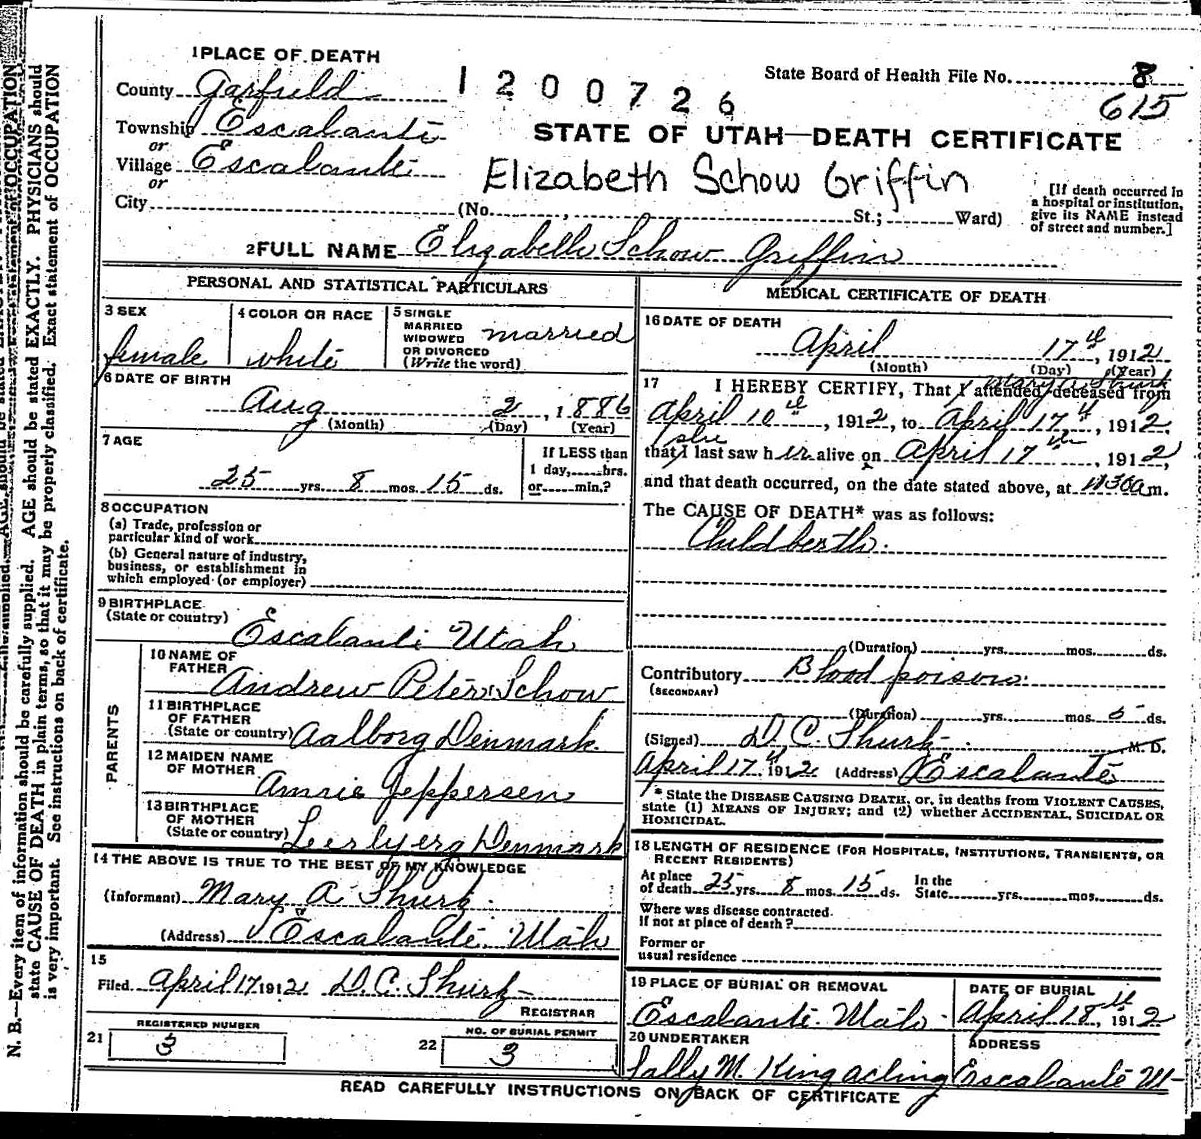 1 PLACE OF DEATH
County Garfield
1200726
State Board of Health File No. 8
615
Township Escalante
or
Village Escalante
or
City
STATE OF UTAH—DEATH CERTIFICATE
Elizabeth Schow Griffin
(No. , St.; Ward)
[If death occurred in
a hospital or institution,
give its NAME instead
of street and number.]
2 FULL NAME Elizabeth Schow Griffin
PERSONAL AND STATISTICAL PARTICULARS
3 SEX
female
4 COLOR OR RACE
white
5 SINGLE
MARRIED
WIDOWED
OR DIVORCED
(Write the word)
married
6 DATE OF BIRTH
Aug 2, 1886
(Month) (Day) (Year)
7 AGE
25 yrs. 8 mos. 15 ds.
If LESS than
1 day, hrs.
or min.?
8 OCCUPATION
(a) Trade, profession or
particular kind of work
(b) General nature of industry,
business, or establishment in
which employed (or employer)
9 BIRTHPLACE
(State or country)
Escalante Utah
PARENTS
10 NAME OF
FATHER
Andrew Peter Schow
11 BIRTHPLACE
OF FATHER
(State or country) Aalborg Denmark.
12 MAIDEN NAME
OF MOTHER
Annie Jeppersen
13 BIRTHPLACE
OF MOTHER
(State or country) Denmark
14 THE ABOVE IS TRUE TO THE BEST OF MY KNOWLEDGE
(Informant) Mary A Shurtz.
(Address) Escalante. Utah
15
Filed April 17, 1912 D. C. Shurtz
REGISTRAR
21
REGISTERED NUMBER
3
22
NO. OF BURIAL PERMIT
3
MEDICAL CERTIFICATE OF DEATH
16 DATE OF DEATH
April 17th, 1912
(Month) (Day) (Year)
Mary A. Shurtz
17 I HEREBY CERTIFY, That I attended deceased from
April 10th, 1912, to April 17th, 1912.
she
that I last saw her alive on April 17th, 1912,
and that death occurred, on the date stated above, at 1130am.
The CAUSE OF DEATH* was as follows:
Childberth.
(Duration) yrs. mos. ds.
Contributory Blood poison.
(SECONDARY)
(Duration) yrs. mos. 5 ds.
(Signed) D. C. Shurtz M. D.
April 17th, 1912 (Address) Escalante
* State the DISEASE CAUSING DEATH, or, in deaths from VIOLENT CAUSES,
state (1) MEANS OF INJURY; and (2) whether ACCIDENTAL, SUICIDAL OR
HOMICIDAL.
18 LENGTH OF RESIDENCE (FOR HOSPITALS, INSTITUTIONS, TRANSIENTS, OR
RECENT RESIDENTS)
At place
of death 25 yrs. 8 mos. 15 ds.
In the
State yrs. mos. ds.
Where was disease contracted
If not at place of death?
Former or
usual residence
19 PLACE OF BURIAL OR REMOVAL
Escalante. Utah.
DATE OF BURIAL
April 18th, 1912
20 UNDERTAKER
Sally M. King acting
ADDRESS
Escalante U
READ CAREFULLY INSTRUCTIONS ON BACK OF CERTIFICATE
N. B.—Every item of information should be carefully supplied. AGE should be stated EXACTLY. PHYSICIANS should
state CAUSE OF DEATH in plain terms, so that it may be properly classified. Exact statement of OCCUPATION
is very important. See instructions on back of certificate.